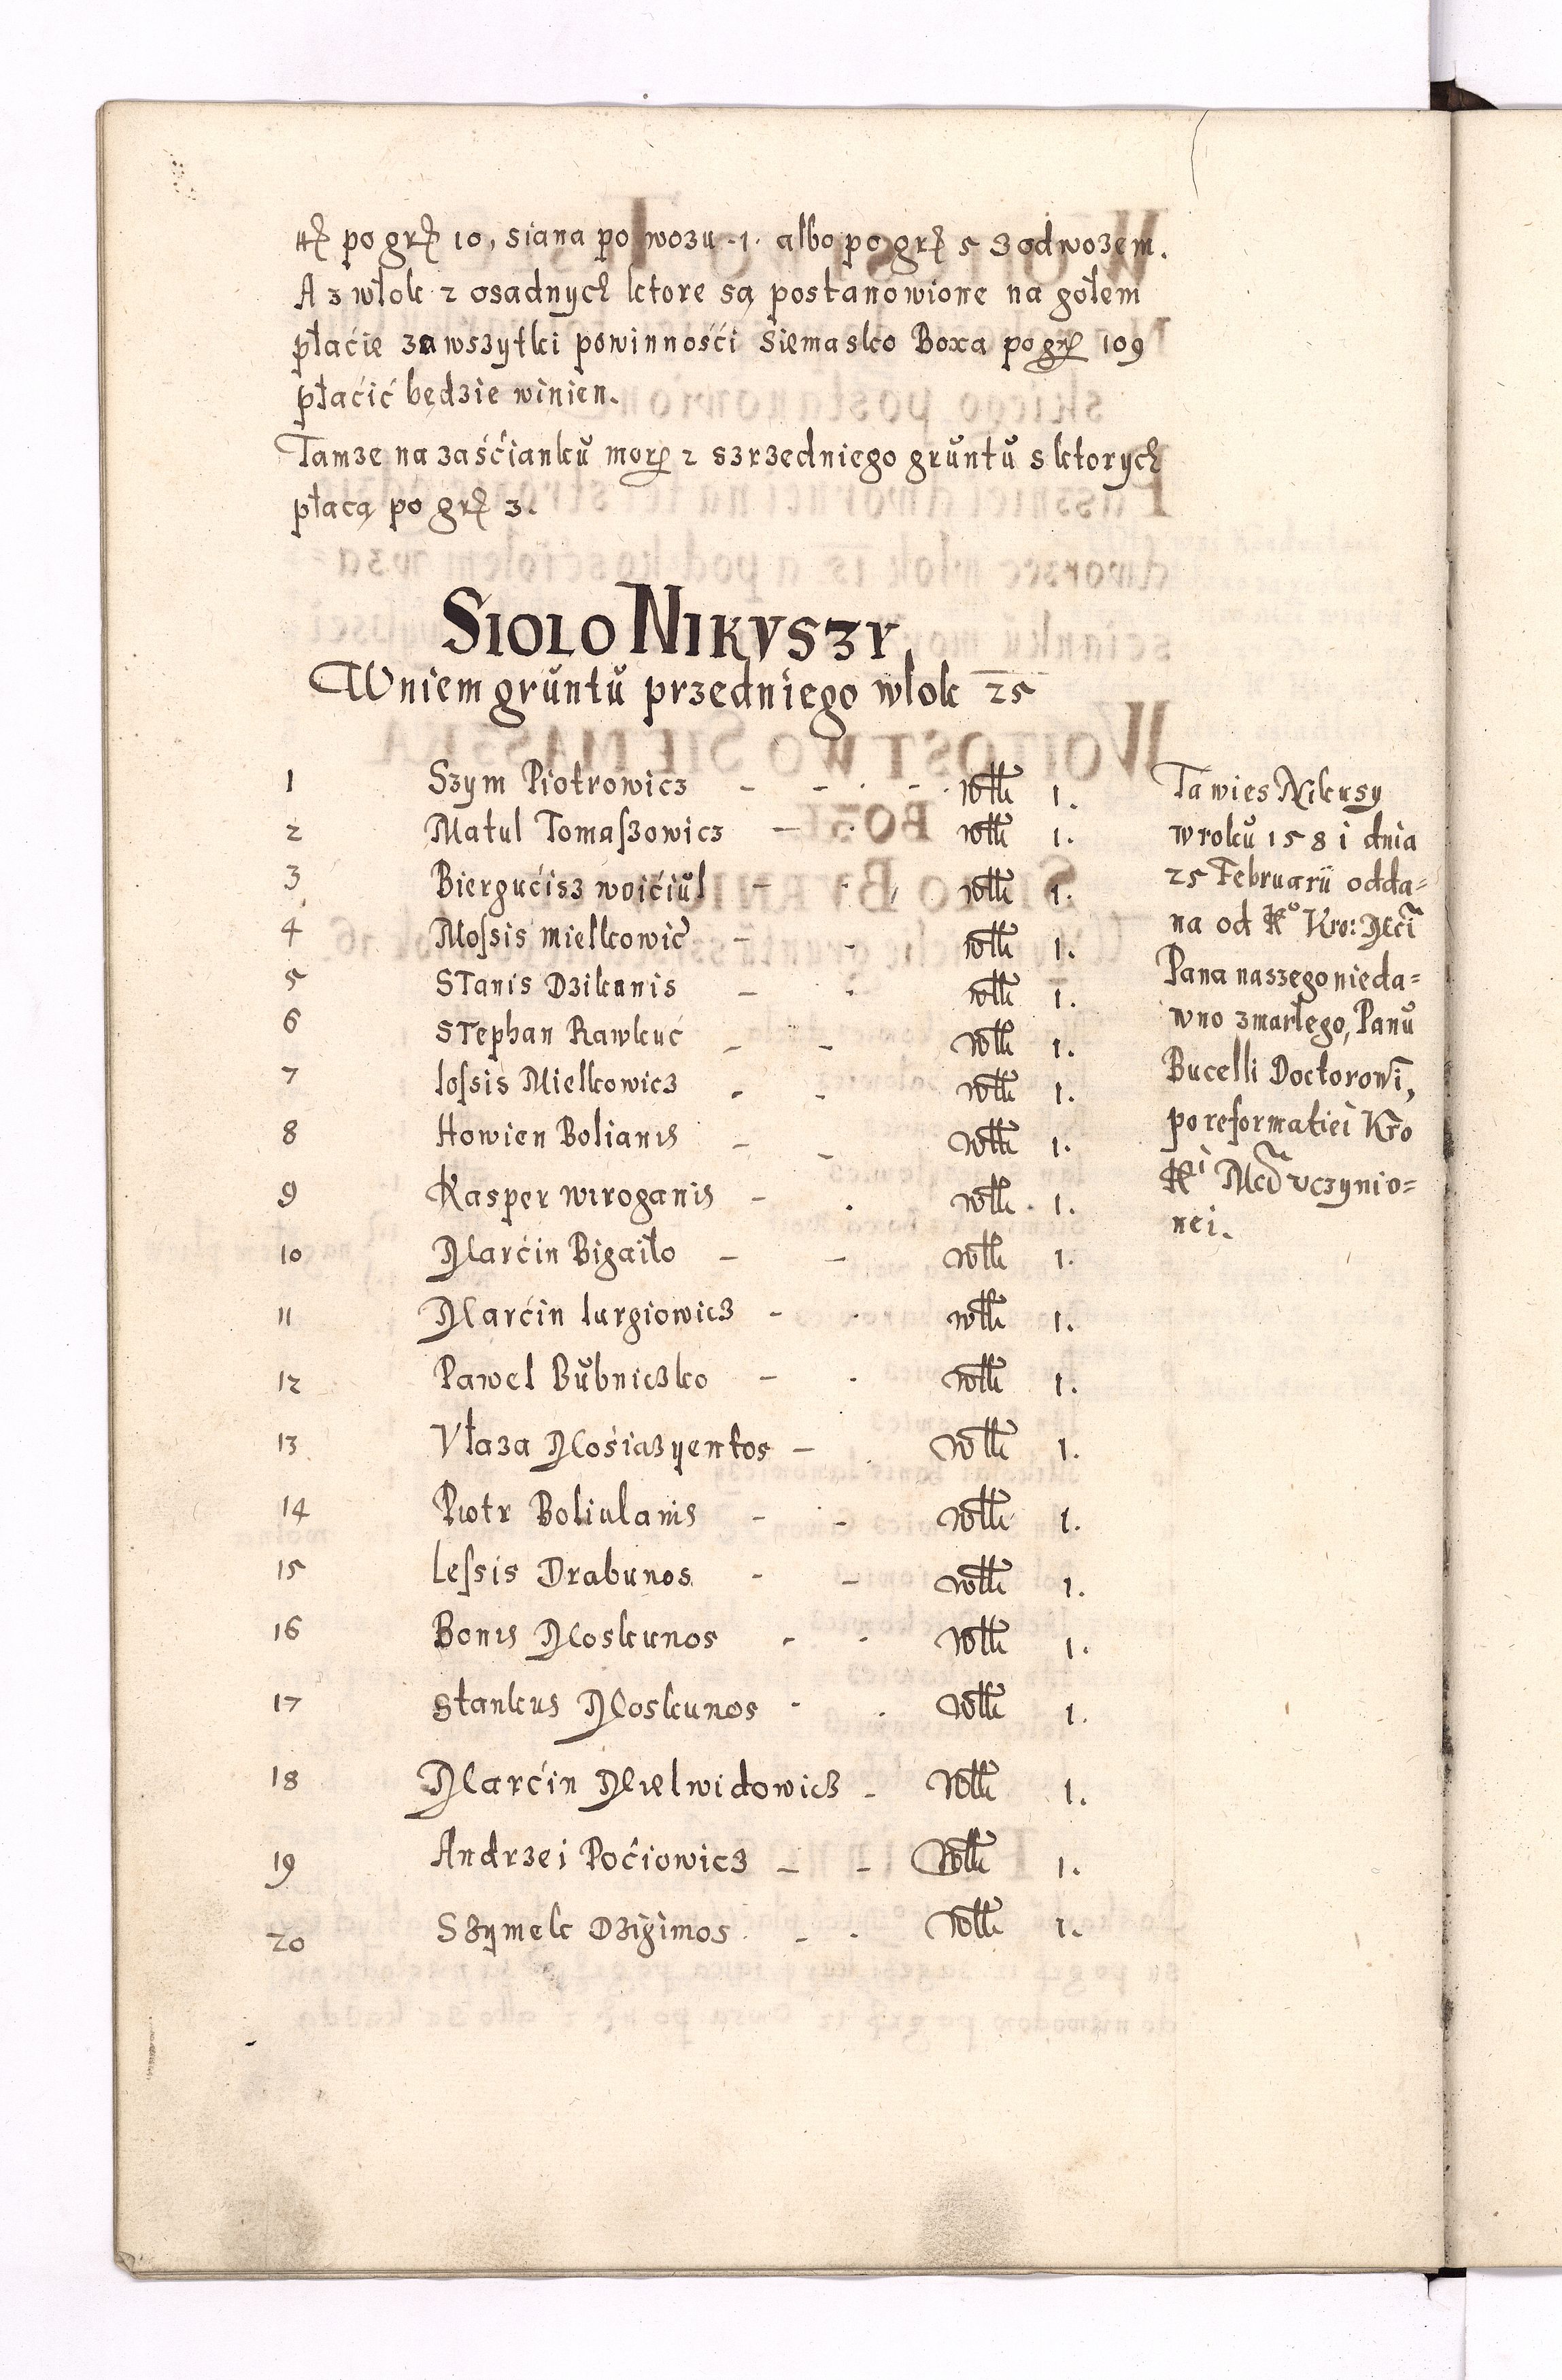 po gr 10, siana po wozu 1. albo po gr 5 z odwozem.
A z włok 2 osadnych ktore są postanowione na gołem
płacie za wszytki powinnośći Siemasko Boxa po gr 109
płaćić będzie winien.
Tamze na zaśćianku morg 2 szrzedniego gruntu s ktorych
płacą po gr 3.
SIOLO NIKVSZY
W niem gruntu przedniego wlok 25
1 Szym Piotrowicz – – włk 1.
2 Matul Tomaszowicz – włk 1.
3 Biergućisz woićiul – włk 1.
4 Mossis mielkowic – – włk 1.
5 Stanis Dzikanis – włk 1.
6 Stephan Rawkuć – – włk 1.
7 Iossis Mielkowicz – – włk 1.
8 Howien Bolianis – – włk 1.
9 Kasper wiroganis – włk 1.
10 Marćin Bigaiło – – włk 1.
11 Marćin Iurgiowicz – włk 1.
12 Pawel Bubniczko – włk 1.
13 Vłaza Mosiazyentos – włk 1.
14 Piotr Boliulanis – – włk 1.
15 Iessis Drabunos – – włk 1.
16 Bonis Moskunos – włk 1.
17 Stankus Moskunos – włk 1.
18 Marćin Mielwidowicz – włk 1.
19 Andrzei Poćiowicz – – włk 1.
20 Szymek Dzigimos – włk 1.
Ta wies Nikusy
w roku 1581 dnia
25 Februarii odda=
na od Kro: Mći
Pana naszego nieda=
wno zmarłego, Panu
Bucelli Doctorowi,
po reformatiei Kro
Mći vczynio=
nei.